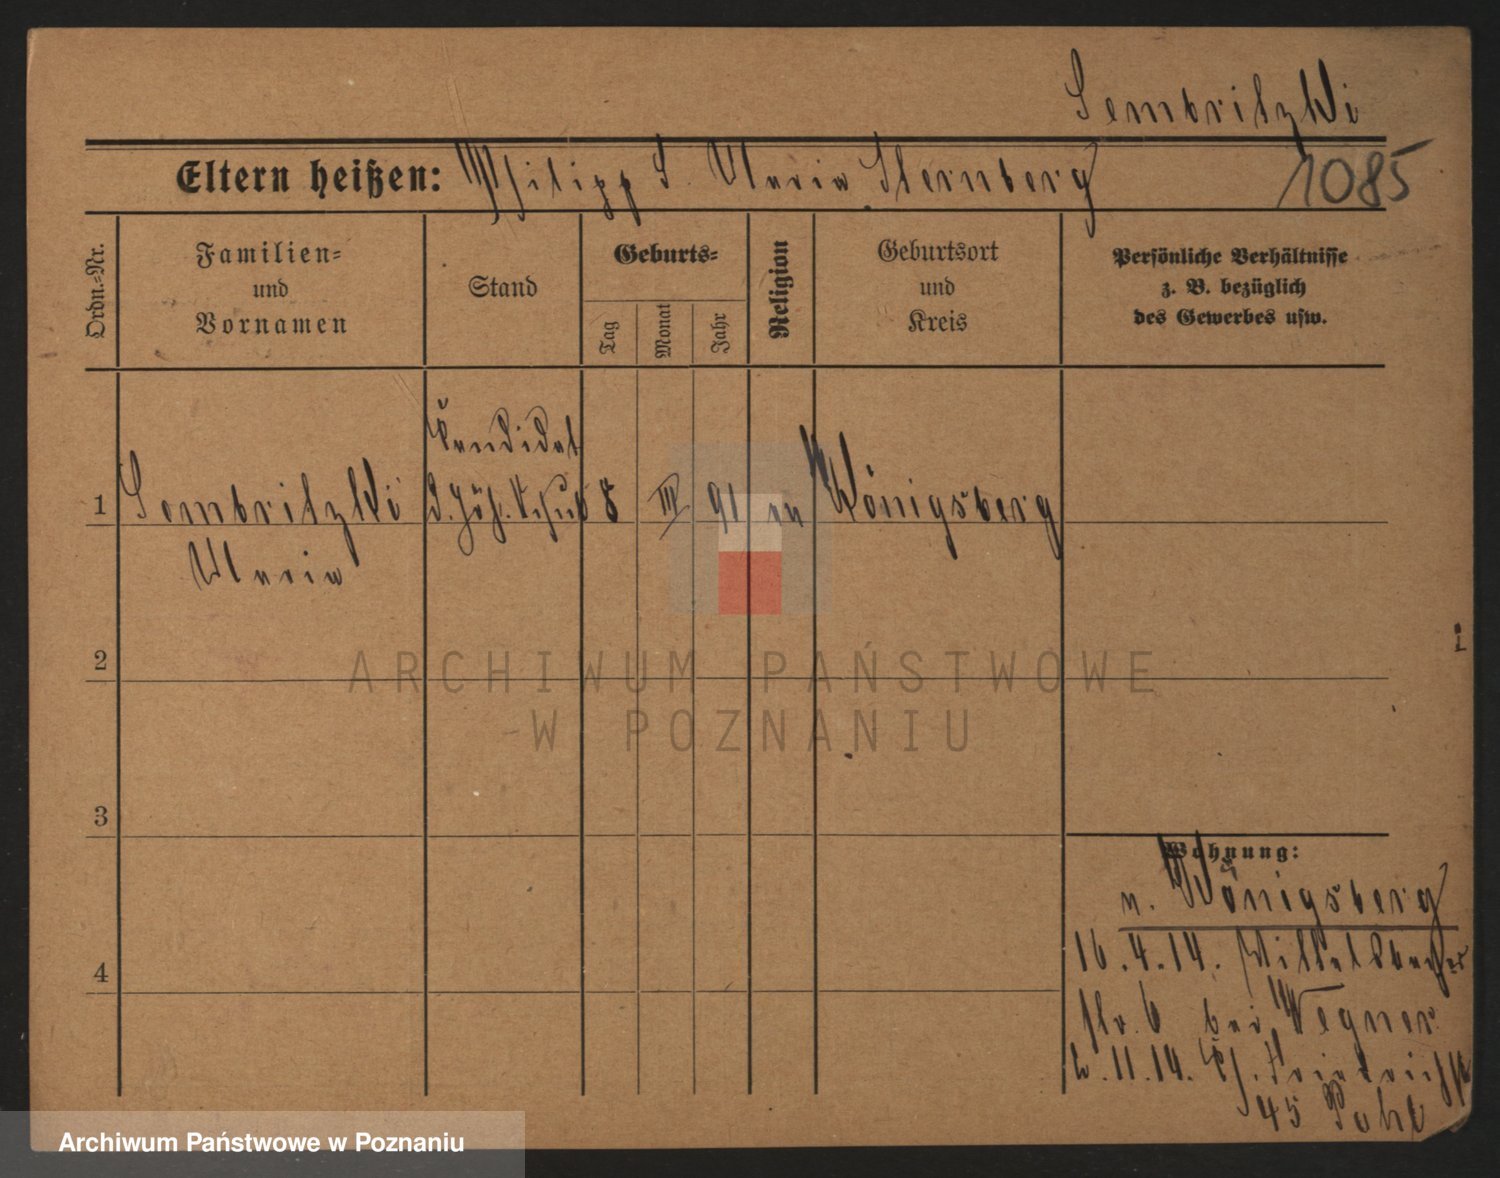 Sembritzki
Eltern heißen: Philipp S. Maria Sternberg
1085
Ordn.-Nr.
Familien-
und
Vornamen
Stand
Geburts-
Tag
Monat
Jahr
Religion
Geburtsort
und
Kreis
Persönliche Verhältnisse
z. B. bezüglich
des Gewerbes usw.
Kandidat
1 Sembritzki d. höh. 8 III 91 Königsberg
Maria
2
ARCHIWUM PAŃSTWOWE
W POZNANIU
3
Wohnung:
n. Königsberg
4
16.4.14.
str. 6 bei Wegner
11.14.
45 Pohl
Archiwum Państwowe w Poznaniu